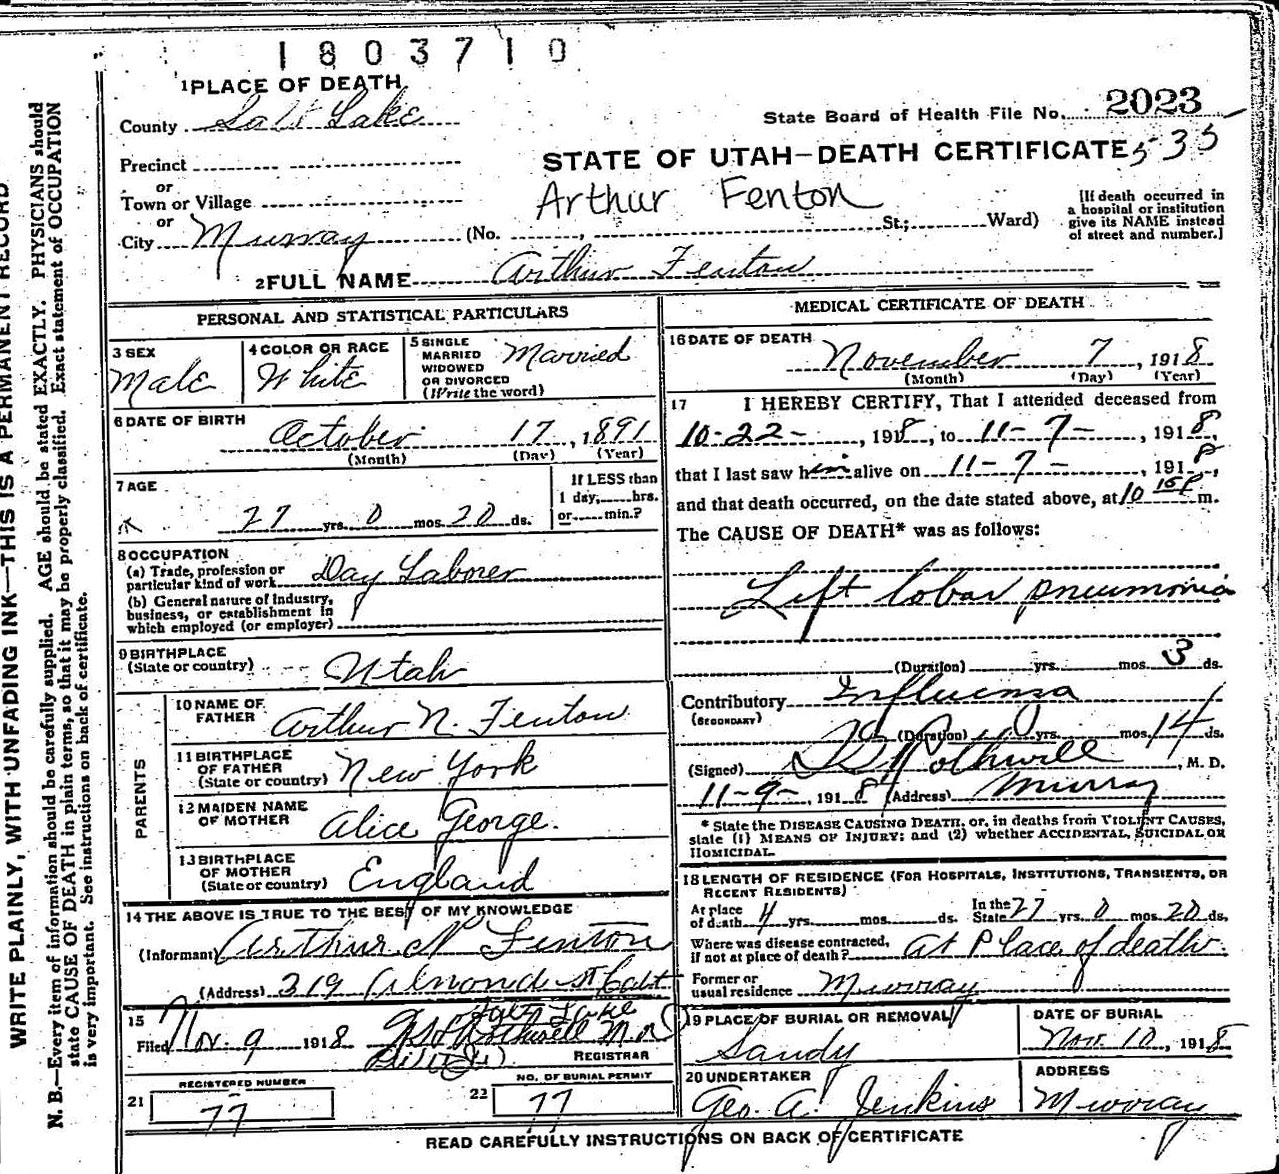 1803710
1 PLACE OF DEATH
County Salt Lake
State Board of Health File No. 2023
Precinct
or
Town or Village
or
City Murray
STATE OF UTAH—DEATH CERTIFICATE 535
Arthur Fenton
(No. , St.; Ward)
[If death occurred in
a hospital or institution
give its NAME instead
of street and number.]
2 FULL NAME Arthur Fenton
PERSONAL AND STATISTICAL PARTICULARS
3 SEX
Male
4 COLOR OR RACE
White
5 SINGLE
MARRIED
WIDOWED
OR DIVORCED
(Write the word)
Married
6 DATE OF BIRTH
October 17, 1891
(Month) (Day) (Year)
7 AGE
27 yrs. 0 mos. 20 ds.
If LESS than
1 day, hrs.
or min.?
8 OCCUPATION
(a) Trade, profession or
particular kind of work Day Laborer
(b) General nature of industry,
business, or establishment in
which employed (or employer)
9 BIRTHPLACE
(State or country) Utah
PARENTS
10 NAME OF
FATHER Arthur N. Fenton
11 BIRTHPLACE
OF FATHER
(State or country) New York
12 MAIDEN NAME
OF MOTHER Alice George.
13 BIRTHPLACE
OF MOTHER
(State or country) England
14 THE ABOVE IS TRUE TO THE BEST OF MY KNOWLEDGE
(Informant) Arthur N Fenton
(Address) 319 Almond St
Salt Lake
15
Filed Nov. 9 1918 Rothwell M.D
REGISTRAR
REGISTERED NUMBER
21 77
NO. OF BURIAL PERMIT
22 77
MEDICAL CERTIFICATE OF DEATH
16 DATE OF DEATH
November 7, 1918
(Month) (Day) (Year)
17 I HEREBY CERTIFY, That I attended deceased from
10-22-, 1918, to 11-7-, 1918,
that I last saw him alive on 11-7-, 1918,
and that death occurred, on the date stated above, at 10 15 P m.
The CAUSE OF DEATH* was as follows:
Left lobar pneumonia
(Duration) yrs. mos. 3 ds.
Contributory Influenza
(SECONDARY)
(Duration) yrs. mos. 14 ds.
(Signed) Rothwell, M. D.
11-9-, 1918 (Address) Murray
* State the DISEASE CAUSING DEATH, or, in deaths from VIOLENT CAUSES,
state (1) MEANS OF INJURY; and (2) whether ACCIDENTAL, SUICIDAL OR
HOMICIDAL.
18 LENGTH OF RESIDENCE (FOR HOSPITALS, INSTITUTIONS, TRANSIENTS, OR
RECENT RESIDENTS)
At place
of death 4 yrs. mos. ds. In the
State 27 yrs. 0 mos. 20 ds.
Where was disease contracted,
if not at place of death? At Place of death.
Former or
usual residence Murray
19 PLACE OF BURIAL OR REMOVAL
Sandy
DATE OF BURIAL
Nov. 10, 1918
20 UNDERTAKER
Geo. A. Jenkins
ADDRESS
Murray
READ CAREFULLY INSTRUCTIONS ON BACK OF CERTIFICATE
WRITE PLAINLY, WITH UNFADING INK—THIS IS A PERMANENT RECORD
N. B.—Every item of information should be carefully supplied. AGE should be stated EXACTLY. PHYSICIANS should
state CAUSE OF DEATH in plain terms, so that it may be properly classified. Exact statement of OCCUPATION
is very important. See instructions on back of certificate.